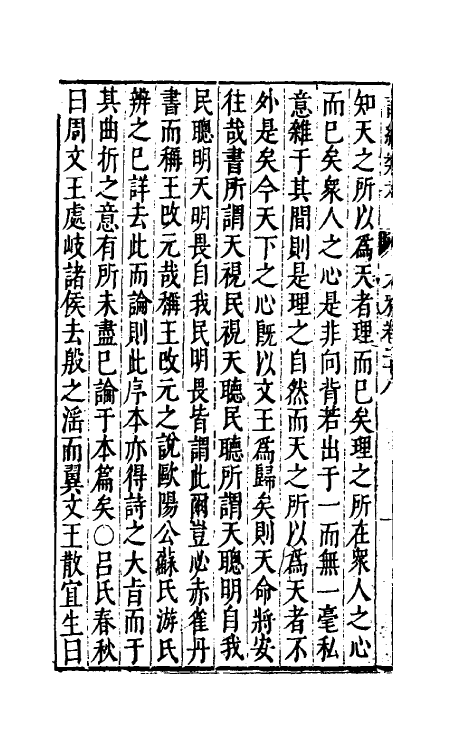 知天之所以爲天者理而已矣理之所在衆人之心
而已矣衆人之心是非向背若出于一而無一毫私
意雜于其間則是理之自然而天之所以爲天者不
外是矣今天下之心旣以文王爲歸矣則天命將安
往哉書所謂天視民視天聽民聽所謂天聰明自我
民聰明天明畏自我民明畏皆謂此爾豈必赤雀丹
書而稱王改元哉稱王改元之說歐陽公蘇氏游氏
辨之已詳去此而論則此序本亦得詩之大旨而于
其曲折之意有所未盡已論于本篇矣〇呂氏春秋
曰周文王處岐諸侯去殷之滛而翼文王散宜生曰